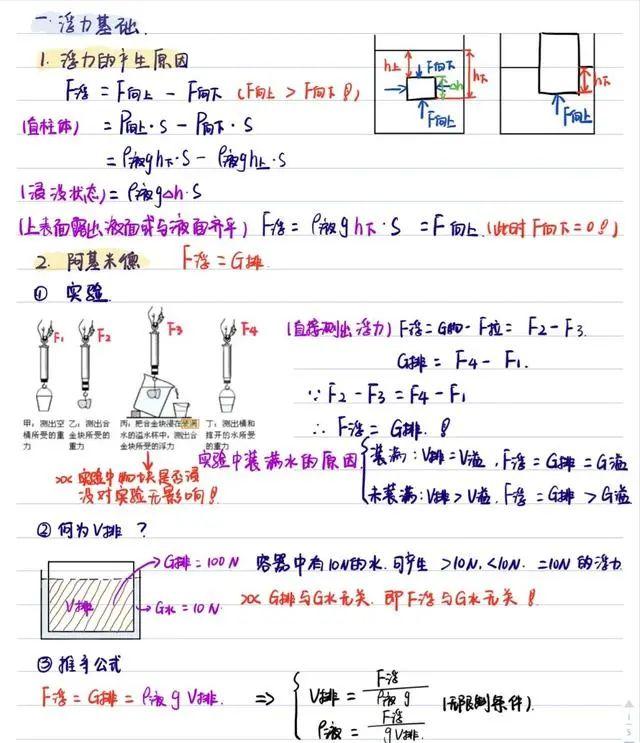 一. 浮力基础.
1. 浮力的产生原因
F浮 = F向上 - F向下 (F向上 > F向下!)
(直柱体) = P向上·S - P向下·S
= ρ液gh下·S - ρ液gh上·S
(浸没状态) = ρ液g△h·S
(上表面露出液面或与液面齐平) F浮 = ρ液gh下·S = F向上. (此时F向下=0!)
h上 F向下 h下 △h F向上
h下 F向上
2. 阿基米德 F浮 = G排.
① 实验.
F1 F2 F3 F4
甲:测出空桶所受的重力
乙:测出合金块所受的重力
丙:把合金块浸在装满水的溢水杯中,测出合金块所受的浮力
丁:测出桶和排开的水所受的重力
(直接测出浮力) F浮 = G物 - F拉 = F2 - F3.
G排 = F4 - F1.
∵ F2 - F3 = F4 - F1
∴ F浮 = G排. !
※ 实验中物块是否浸没对实验无影响!
实验中装满水的原因
装满: V排 = V溢, F浮 = G排 = G溢
未装满: V排 > V溢, F浮 = G排 > G溢
② 何为V排 ?
V排
G排 = 100N
G水 = 10N
容器中有10N的水. 可产生 >10N, <10N. =10N 的浮力
※ G排与G水无关. 即F浮与G水无关 !
③ 推导公式
F浮 = G排 = ρ液 g V排. ⇒
V排 = F浮/ρ液 g
ρ液 = F浮/g V排.
(无限制条件).